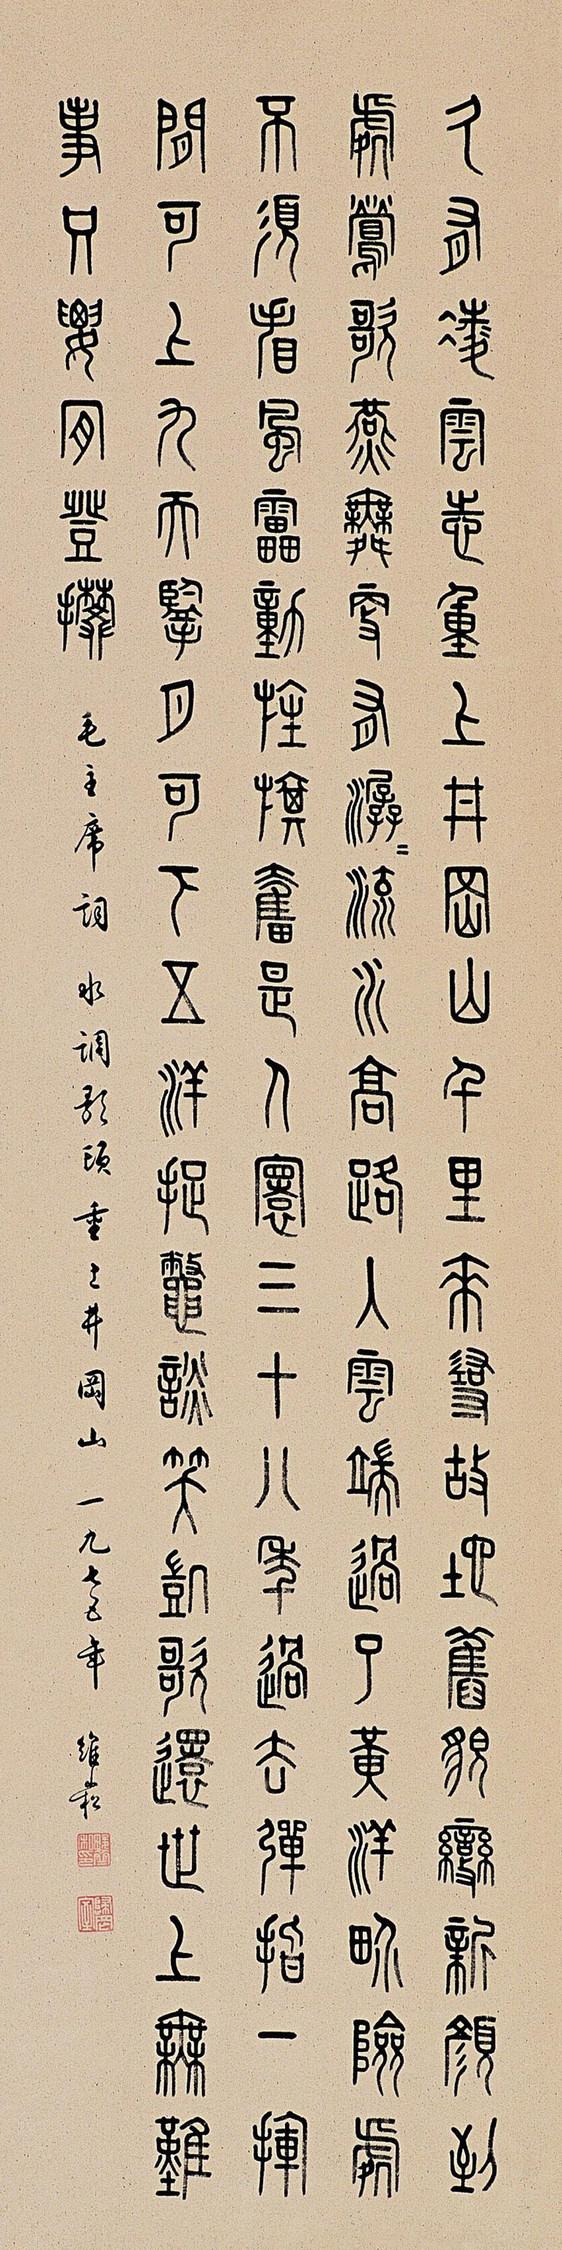 久有凌雲志重上井岡山千里來尋故地舊貌變新顏到
處鶯歌燕舞更有潺〻流水高路入雲端過了黃洋界險處
不須看風雷動旌旗奮是人寰三十八年過去彈指一揮
間可上九天攬月可下五洋捉鼈談笑凱歌還世上無難
事只要肯登攀
毛主席詞 水調歌頭 重上井岡山 一九七五年 維崧